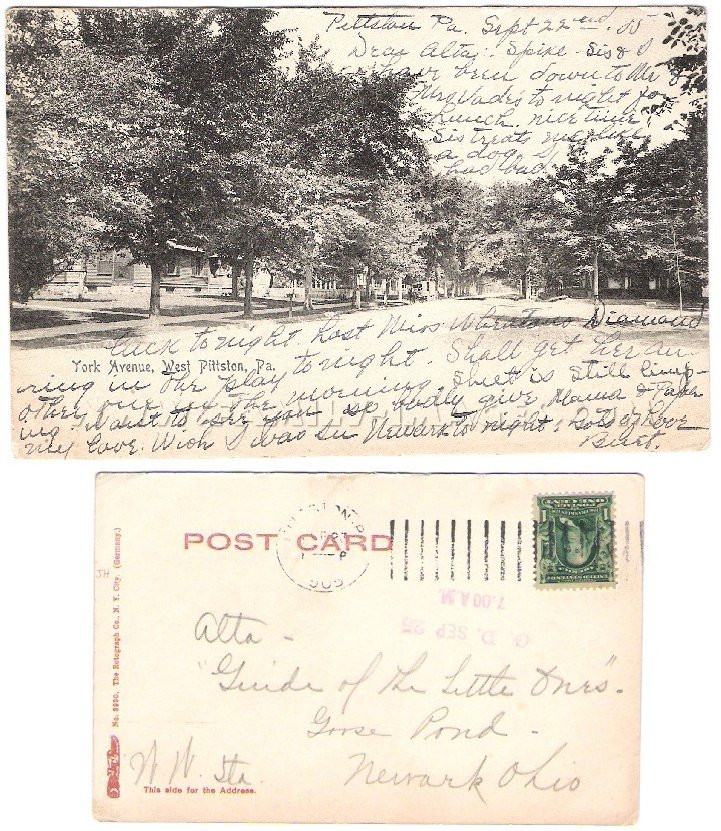 Pittston Pa. Sept 22nd. 05
Dear Alta; Spike - Sis & I
have been down to Mr &
Mrs Wade's to night for
lunch, nice time,
Sis treats me like
a dog. I
had bad
luck to night lost Miss Diamond
York Avenue, West Pittston, Pa.
ring in the play to night. Shall get her an-
other one in the morning. is still limp-
ing. Want to see you so badly give Mama & Papa
my love. Wish I was in Newark to night. Lots of Love
Burt.
POST CARD
1
7.00 A.M.
G. D. SEP 25
Alta -
"Guide of the Little Ones".
Goose Pond -
Newark Ohio
W. W. Sta.
This side for the Address.
JH
No. The Rotograph Co., N. Y. City. (Germany.)